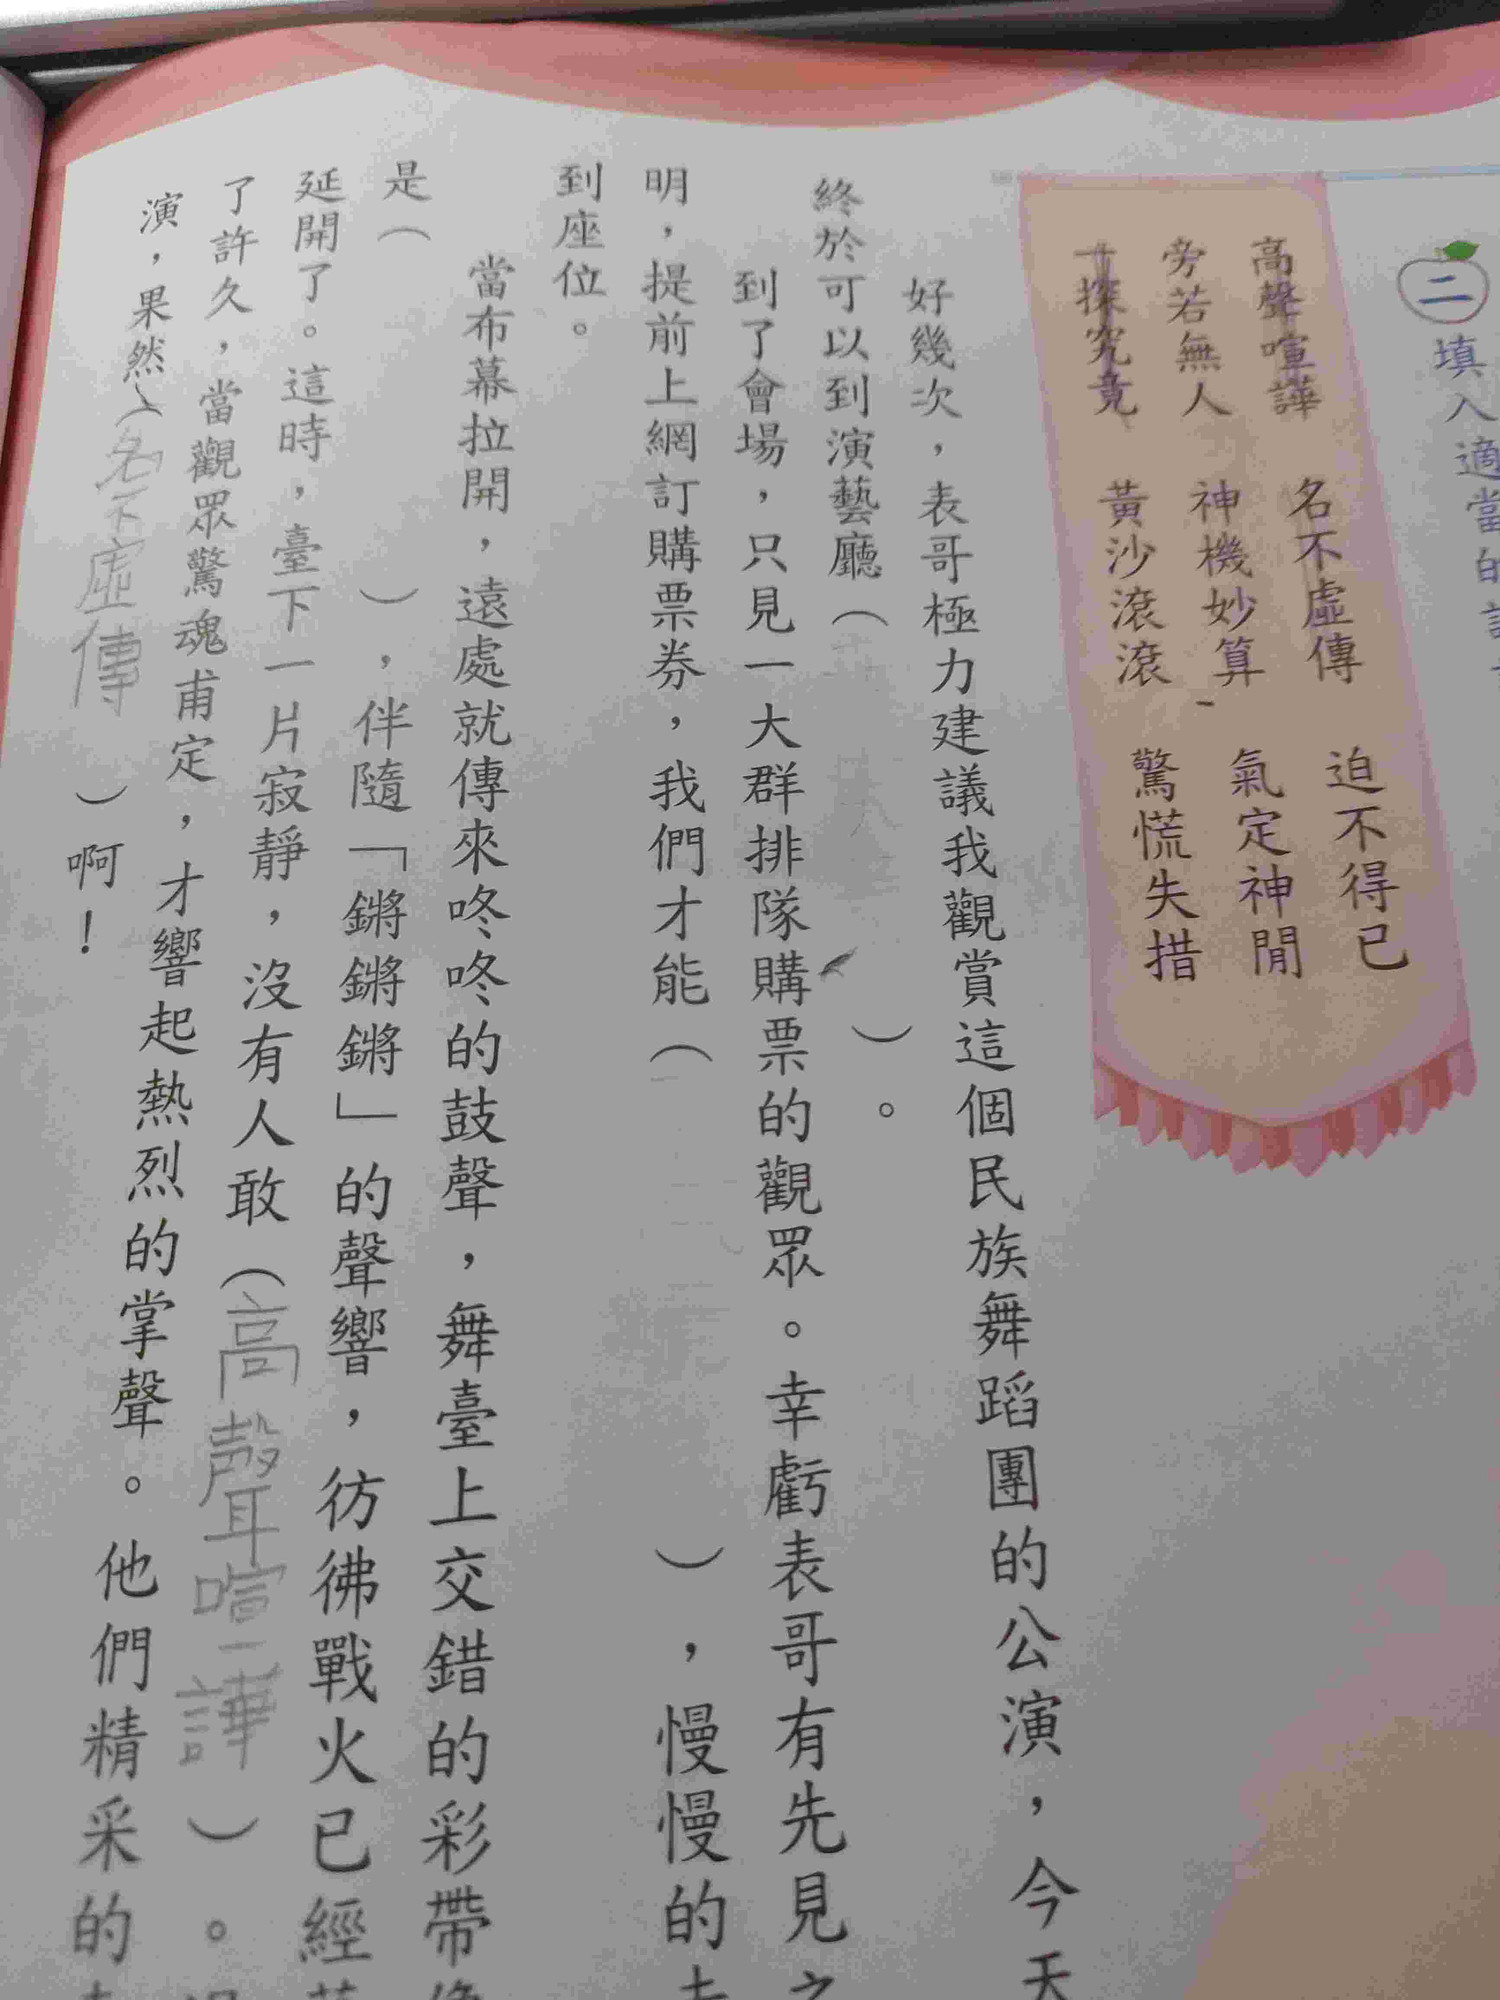 二
填入適當的
高聲喧譁　名不虛傳　迫不得已
旁若無人　神機妙算　氣定神閒
一探究竟　黃沙滾滾　驚慌失措
好幾次，表哥極力建議我觀賞這個民族舞蹈團的公演，今天
終於可以到演藝廳（　）。
到了會場，只見一大群排隊購票的觀眾。幸虧表哥有先見之
明，提前上網訂購票券，我們才能（　），慢慢的走
到座位。
當布幕拉開，遠處就傳來咚咚咚的鼓聲，舞臺上交錯的彩帶像
是（　），伴隨「鏘鏘鏘」的聲響，彷彿戰火已經蔓
延開了。這時，臺下一片寂靜，沒有人敢（高聲喧譁）。
了許久，當觀眾驚魂甫定，才響起熱烈的掌聲。他們精采的
演，果然（名不虛傳）啊！